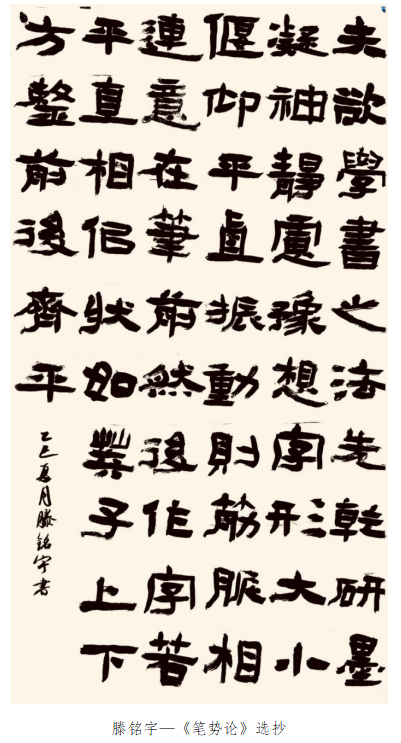 夫欲學書之法先乾研墨
凝神靜慮豫想字形大小
偃仰平直振動則筋脈相
連意在筆前然後作字若
平直相佀狀如筭子上下
方整前後齊平
乙巳夏月滕銘宇書
滕铭宇—《笔势论》选抄